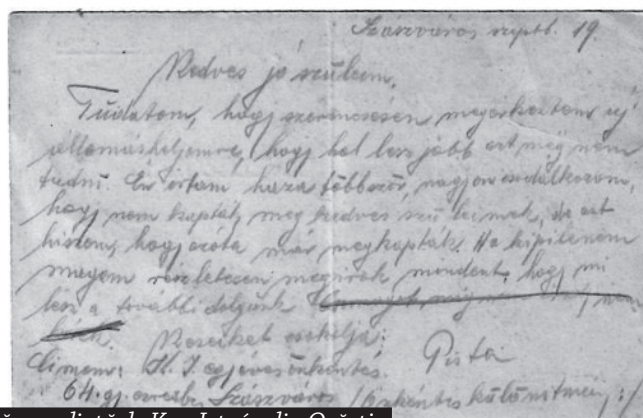 Szászváros szeptb. 19.
Kedves jó szüleim,
Tudatom, hogy szerencsésen megérkeztem új
állomáshelyemre, hogy hol lesz jobb azt még nem
tudni. Én írtam haza többször, nagyon csodálkozom,
hogy nem kapták meg kedves szüleimek, de azt
hiszem, hogy azóta már megkapták. Ha kipihenem
magam részletesen megírok mindent, hogy mi
lesz a további dolgunk
Kezeiket csókolja:
Címem: K. I. egyéves önkéntes. Pista
64. gy. ezred Szászváros /önkéntes különítmény:/
listă de Kop István din Orăștie